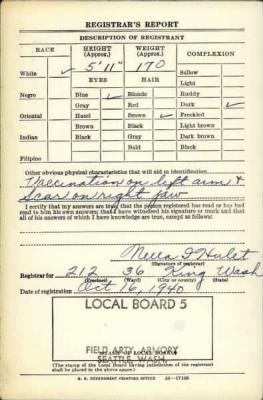 REGISTRAR'S REPORT
DESCRIPTION OF REGISTRANT
RACE
HEIGHT
(Approx.)
WEIGHT
(Approx.)
COMPLEXION
White ✓
5'11"
170
Sallow
EYES
HAIR
Light
Negro
Blue ✓
Blonde
Ruddy
Gray
Red
Dark ✓
Oriental
Hazel
Brown ✓
Freckled
Brown
Black
Light brown
Indian
Black
Gray
Dark brown
Bald
Black
Filipino
Other obvious physical characteristics that will aid in identification
Vaccination on left arm &
Scar on right jaw
I certify that my answers are true; that the person registered has read or has
had read to him his own answers; that I have witnessed his signature or mark and that
all of his answers of which I have knowledge are true, except as follows:
Hulet
(Signature of registrar)
Registrar for 212 36 King Wash
(Precinct) (Ward) (City or county) (State)
Date of registration Oct 16, 1940
LOCAL BOARD 5
FIELD ARTY. ARMORY
SEATTLE, WASH.
(The stamp of the Local Board having jurisdiction of the registrant shall be
placed in the above space.)
U. S. GOVERNMENT PRINTING OFFICE 16—17105